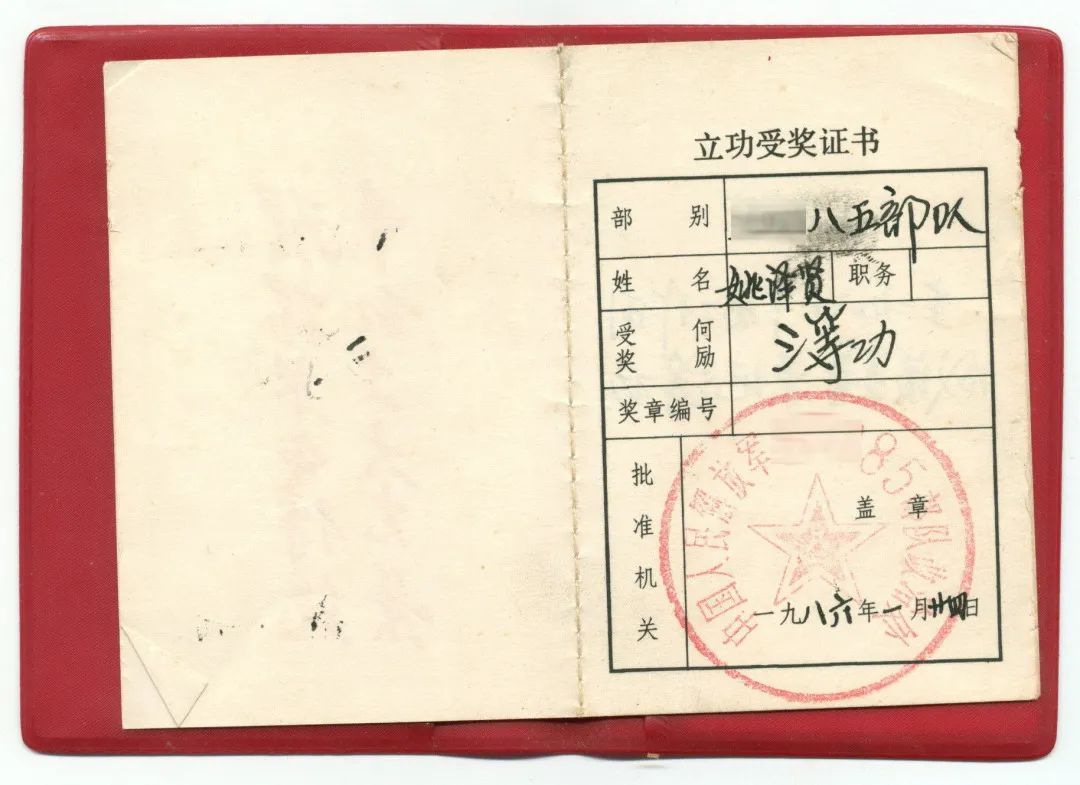 立功受奖证书
部别 八五部队
姓名 姚泽贤 职务
受何奖励 三等功
奖章编号
批准机关
中国人民解放军 85部队政治处
盖章
一九八六年一月廿四日